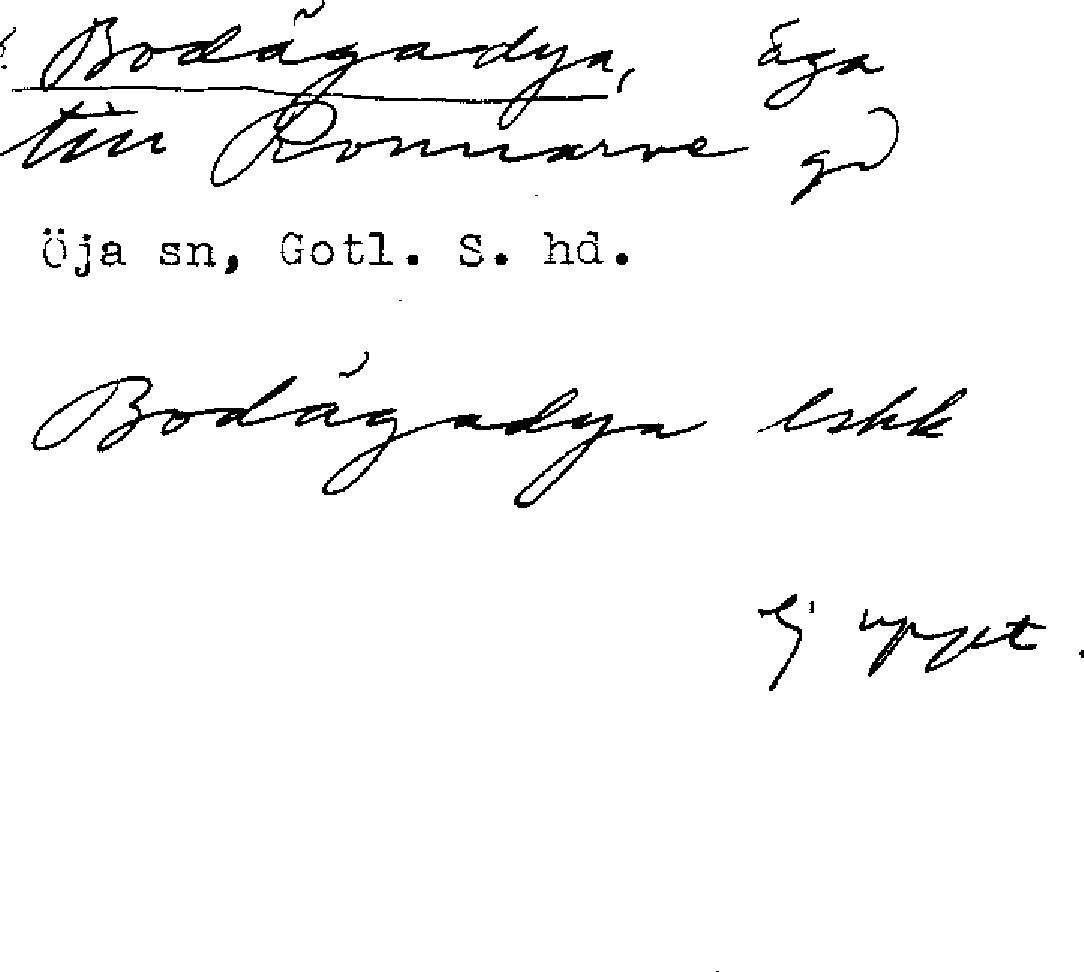 Bodägadya, äga
till Ronnarve gd
Öja sn, Gotl. S. hd.
Bodägadya lskk
Ej uppt.